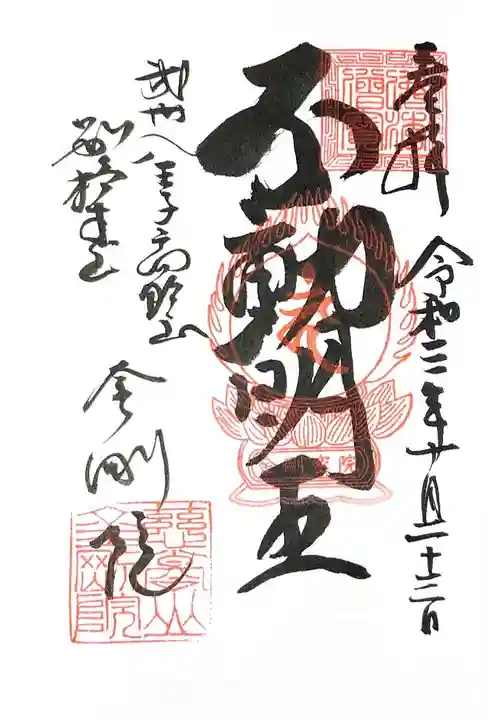 奉拝
令和三年十月二十三日
不動明王
武州八王子高野山
別格本山
金剛院